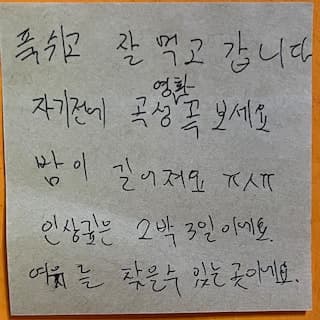 푹쉬고 잘 먹고 갑니다
자기전에 곡성 영화 꼭 보세요
밤이 길어져요 ㅠㅅㅠ
인상깊은 2박 3일이에요.
여유를 찾을수 있는 곳이에요.